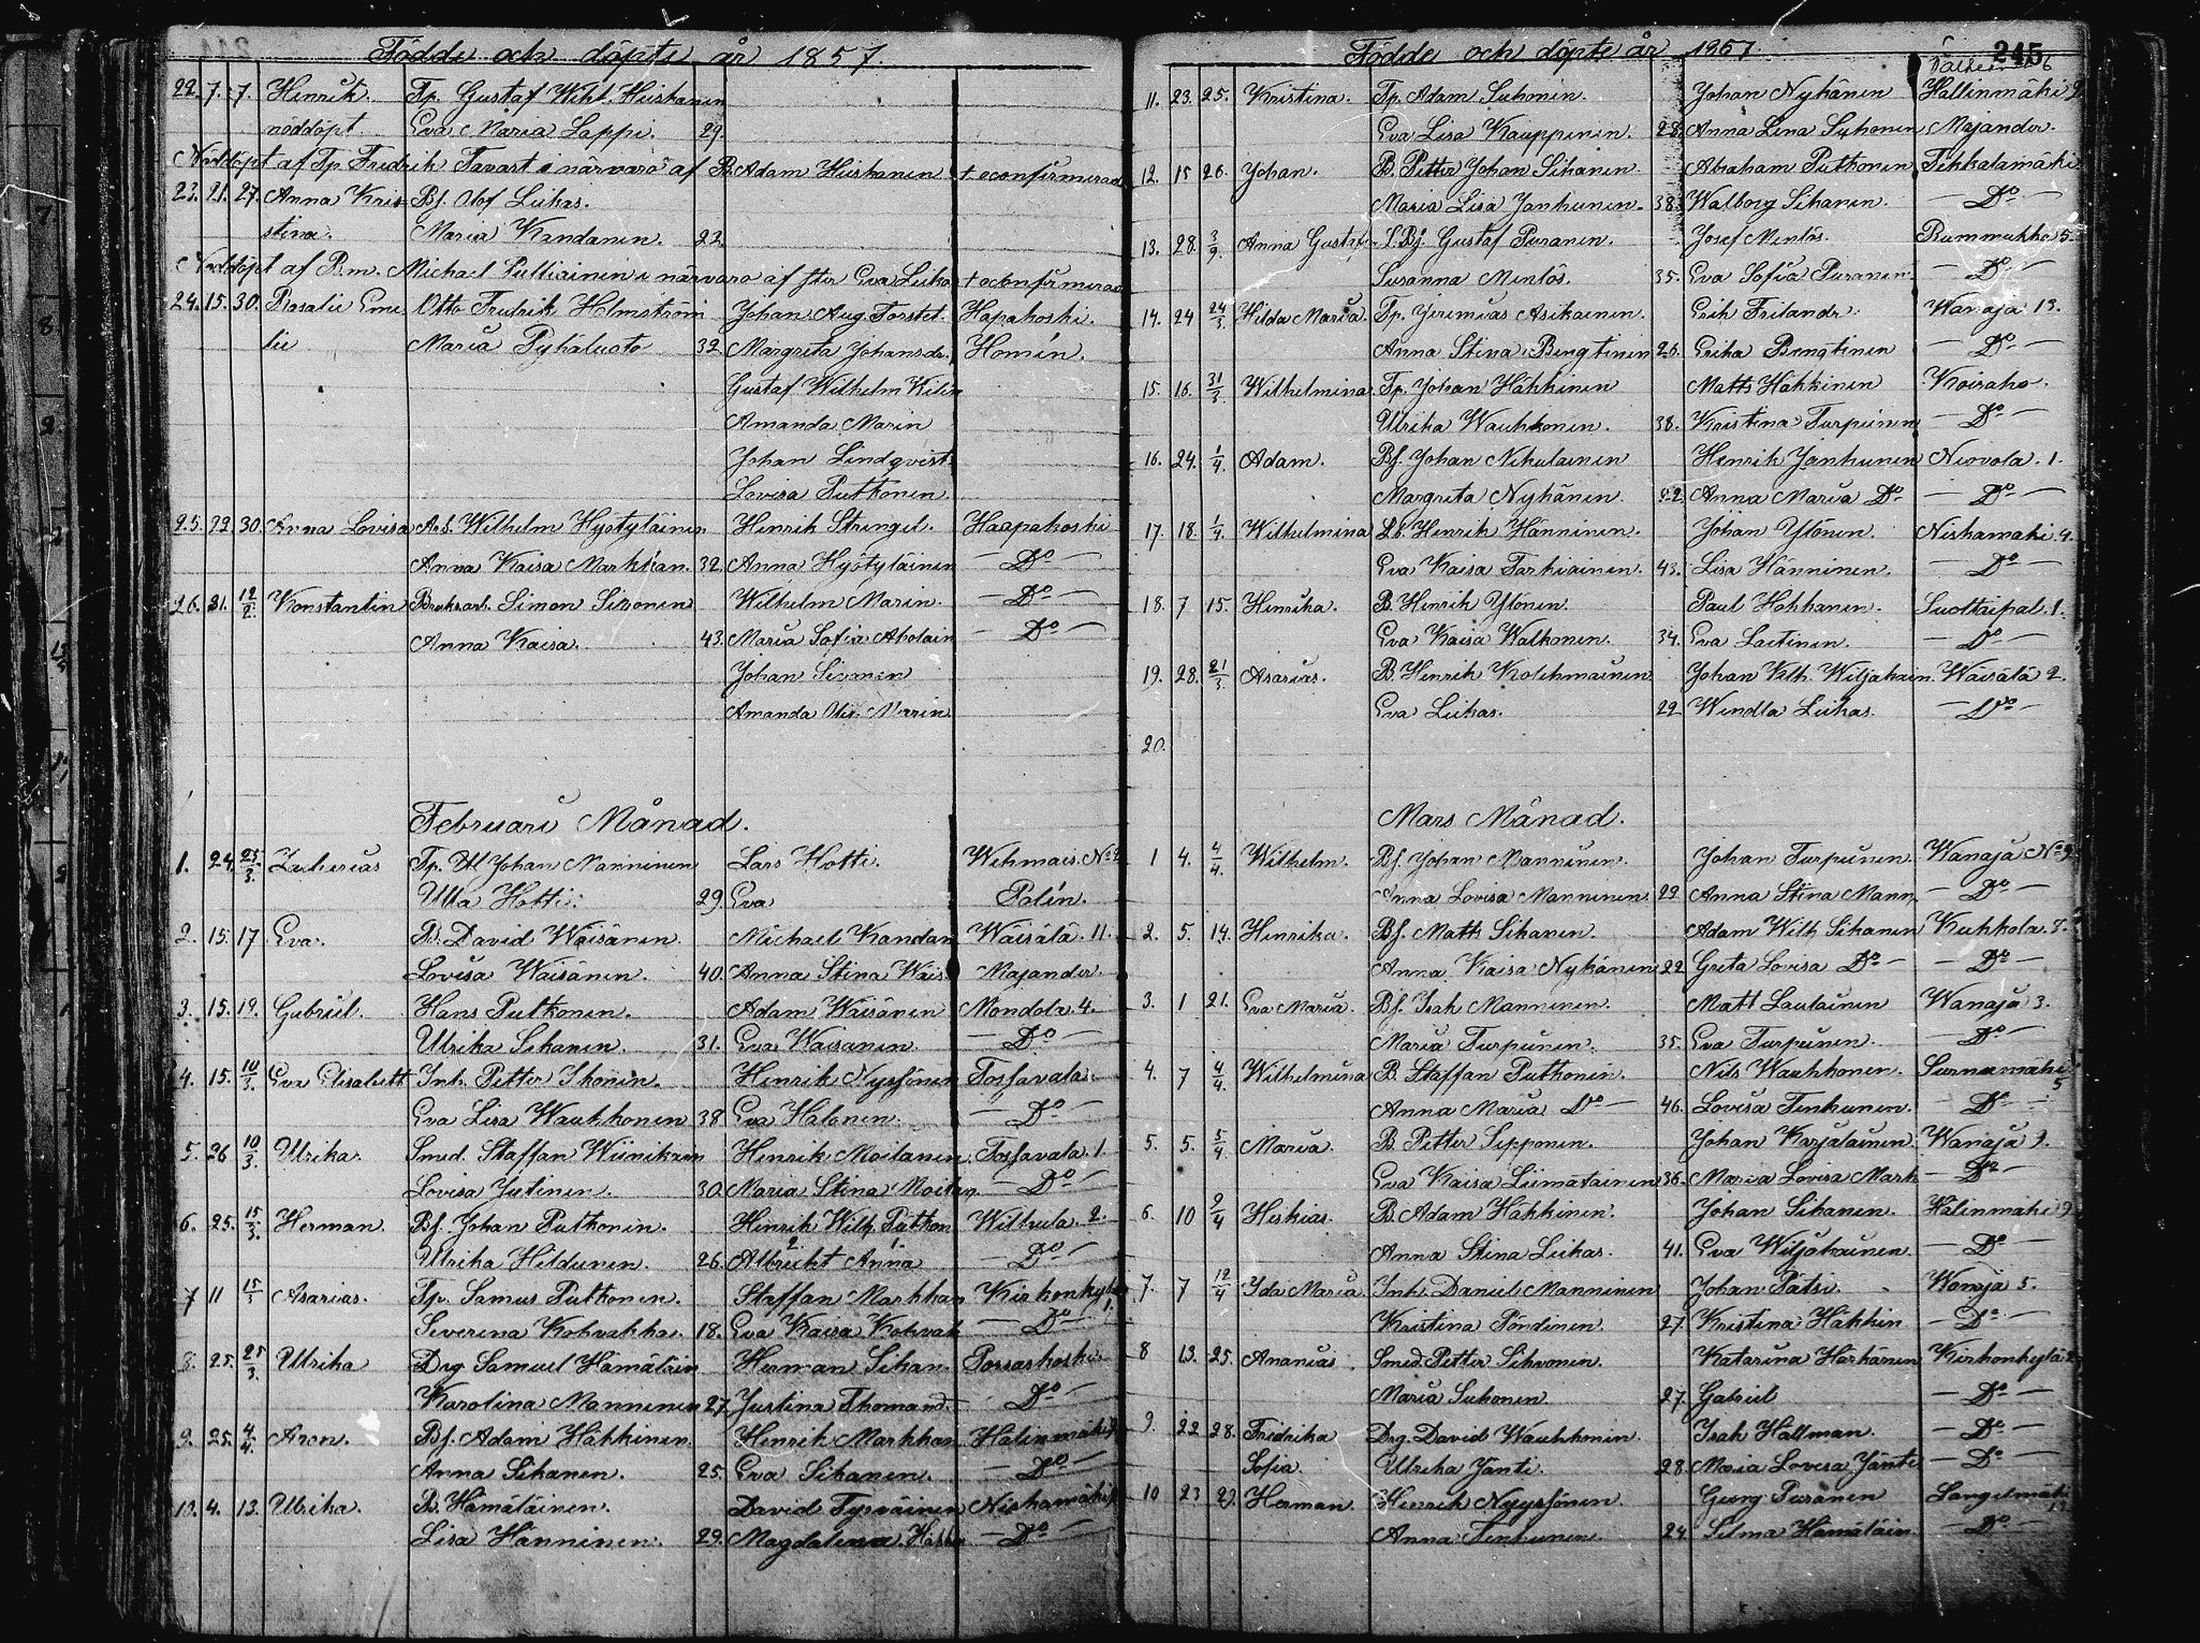 Födde och döpte år 1857.
22. 7. 7. Henrik. Tp. Gustaf Wilh. Hiiskanen
nöddöpt Eva Maria Lappi. 29.
Nöddöpt af Tp. Fredrik Tavast i närvaro af B. Adam Hiiskanen + econfirmerad
23. 21. 27. Anna Kri- Bf. Olof Liikas.
stina. Maria Kandanen. 22.
Nöddöpt af B.m. Michael Pulliainen i närvaro af Eva Leika + econfirmerad
24. 15. 30. Rosalie Eme Otto Fredrik Holmström Johan Aug. Torstet. Hapakoski.
lie Maria Pyhäluoto 32. Margreta Johansdr. Homin.
Gustaf Wilhelm Kilin
Amanda Marin
Johan Lindqvist
Lovisa Putkonen.
25. 22. 30. Anna Lovisa Arb. Wilhelm Hyötyläinen Henrik Strengel. Haapakoski
Anna Kaisa Markkan. 32. Anna Hyötyläinen Do
26. 21. 12/2. Konstantin Bruksarb. Simon Simonen Wilhelm Marin. Do
Anna Kaisa. 43. Maria Sofia Aholain Do
Johan Simonen
Amanda Marin
Februari Månad.
1. 24. 25/3. Zacherias Tp. Ul Johan Manninen Lars Hotti. Wehmais. No 4
Ulla Hotti. 29. Eva Polin.
2. 15. 17 Eva. B. David Wäisänen. Michael Kandan Wäisälä. 11.
Lovisa Waisänen. 40. Anna Stina Wäis. Majander.
3. 15. 19. Gabriel. Hans Putkonen. Adam Wäisänen Mondola 4.
Ulrika Sikanen. 31. Eva Waisanen. Do
4. 15. 10/3. Eva Elisabeth Inh. Petter Ikonen. Henrik Nyssönen Tosfavala.
Eva Lisa Wauhkonen 38 Eva Halonen. Do
5. 26 10/3. Ulrika. Smed. Staffan Wiinikanen Henrik Moilanen. Tosfavala. 1.
Lovisa Jutinen. 30. Maria Stina Moilan. Do
6. 25. 15/3. Herman. Bf. Johan Putkonen. Henrik Wilh. Putkon Wiltula. 2.
Ulrika Hildunen. 26. Albrecht Anna Do
7 11 15/3 Asarias. Tp. Samus Putkonen. Staffan Markkan Kirkonkylä 1.
Severina Kohvakka. 18. Eva Kaisa Kohvak Do
8. 25. 25/3. Ulrika Drg Samuel Hämäläin Herman Sikan. Porsaskoski
Karolina Manninen 27. Justina Thomasd. Do
9. 25. 4/4. Aron. Bf. Adam Häkkinen. Henrik Markkan Halinmäki
Anna Sikanen. 25. Eva Sikanen. Do
10. 4. 13. Ulrika. B. Hämäläinen. David Tyrväinen Niskamäki
Lisa Hänninen. 29. Magdalena Do
Födde och döpte år 1857. 245
11. 23. 25. Kristina. Tp. Adam Suhonen. Johan Nykänen Hällinmäki 9.
Eva Lisa Kauppinen. 28. Anna Lena Suhonen Majander.
12. 15 26. Johan. B. Petter Johan Sikanen. Abraham Putkonen Tikkalamäki
Maria Lisa Jankunen. 38. Walborg Sikanen. Do
13. 28. 3/9. Anna Gustaf- S. Bf. Gustaf Puranen. Josef Menlös. Rummukka 5.
Susanna Menlös. 35. Eva Sofia Puranen. Do
14. 24 24/3. Hilda Maria. Tp. Jeremias Asikainen. Erik Frilandr. Wanaja 13.
Anna Stina Bengtinen 26. Erika Bengtinen Do
15. 16. 31/3 Wilhelmina. Tp. Johan Häkkinen Matts Häkkinen Koiraho.
Ulrika Wauhkonen. 38. Kristina Turpunen Do
16. 24. 1/4. Adam. Bf. Johan Nikulainen Henrik Jankunen Neovola. 1.
Margreta Nykänen. 22. Anna Maria Do Do
17. 18. 1/4. Wilhelmina Lb. Henrik Hänninen. Johan Ylönen. Niskamäki 4.
Eva Kaisa Tarkiainen. 43. Lisa Hänninen. Do
18. 7 15. Henrika. B. Henrik Ylönen. Paul Hokkanen. Suotaipal. 1.
Eva Kaisa Walkonen. 34. Eva Laitinen. Do
19. 28. 21/3. Asarias. B. Henrik Kolehmainen Johan Wilh. Wiljakain. Waisälä 2.
Eva Liikas. 22 Wendla Liikas. Do
20.
Mars Månad.
1 4. 4/4. Wilhelm. Bf. Johan Manninen. Johan Turpunen. Wanaja No 9.
Anna Lovisa Manninen. 29 Anna Stina Mann. Do
2. 5. 14. Henrika. Bf. Matts Sikanen. Adam Wilh. Sikanen Kuhkola. 8.
Anna Kaisa Nykänen 22 Greta Lovisa Do Do
3. 1 21. Eva Maria. Bf. Isak Manninen. Matt Laulainen Wanaja 3.
Maria Turpunen. 35. Eva Turpunen. Do
4. 7 4/4. Wilhelmina B. Staffan Putkonen. Nils Wauhkonen. Surnumäki 5
Anna Maria Do 46. Lovisa Tenhunen. Do
5. 5. 5/4. Maria. B. Petter Sipponen. Johan Karjalainen. Wanaja 9.
Eva Kaisa Liimatainen 36. Maria Lovisa Mark Do
6. 10 9/4 Heskias. B. Adam Häkkinen. Johan Sikanen. Hälinmäki 9
Anna Stina Liikas. 41. Eva Wiljakainen. Do
7. 7 12/4 Ida Maria. Inh. Daniel Manninen Johan Pätsi. Wanaja 5.
Kristina Pöndinen. 27. Kristina Häkkin Do
8 13. 25. Ananias. Smed. Petter Sihvonen. Katarina Härkänen Kirkonkylä 2
Maria Suhonen. 27. Gabriel Do
9. 22 28. Fredrika Drg. David Wauhkonen. Isak Hallman. Do
Sofia. Ulrika Jänti. 28 Maria Lovisa Jänti Do
10 23 29. Herman. Henrik Nyyssönen. Georg Puranen Längelmäki
Anna Tenhunen. 24. Selma Hämäläin Do